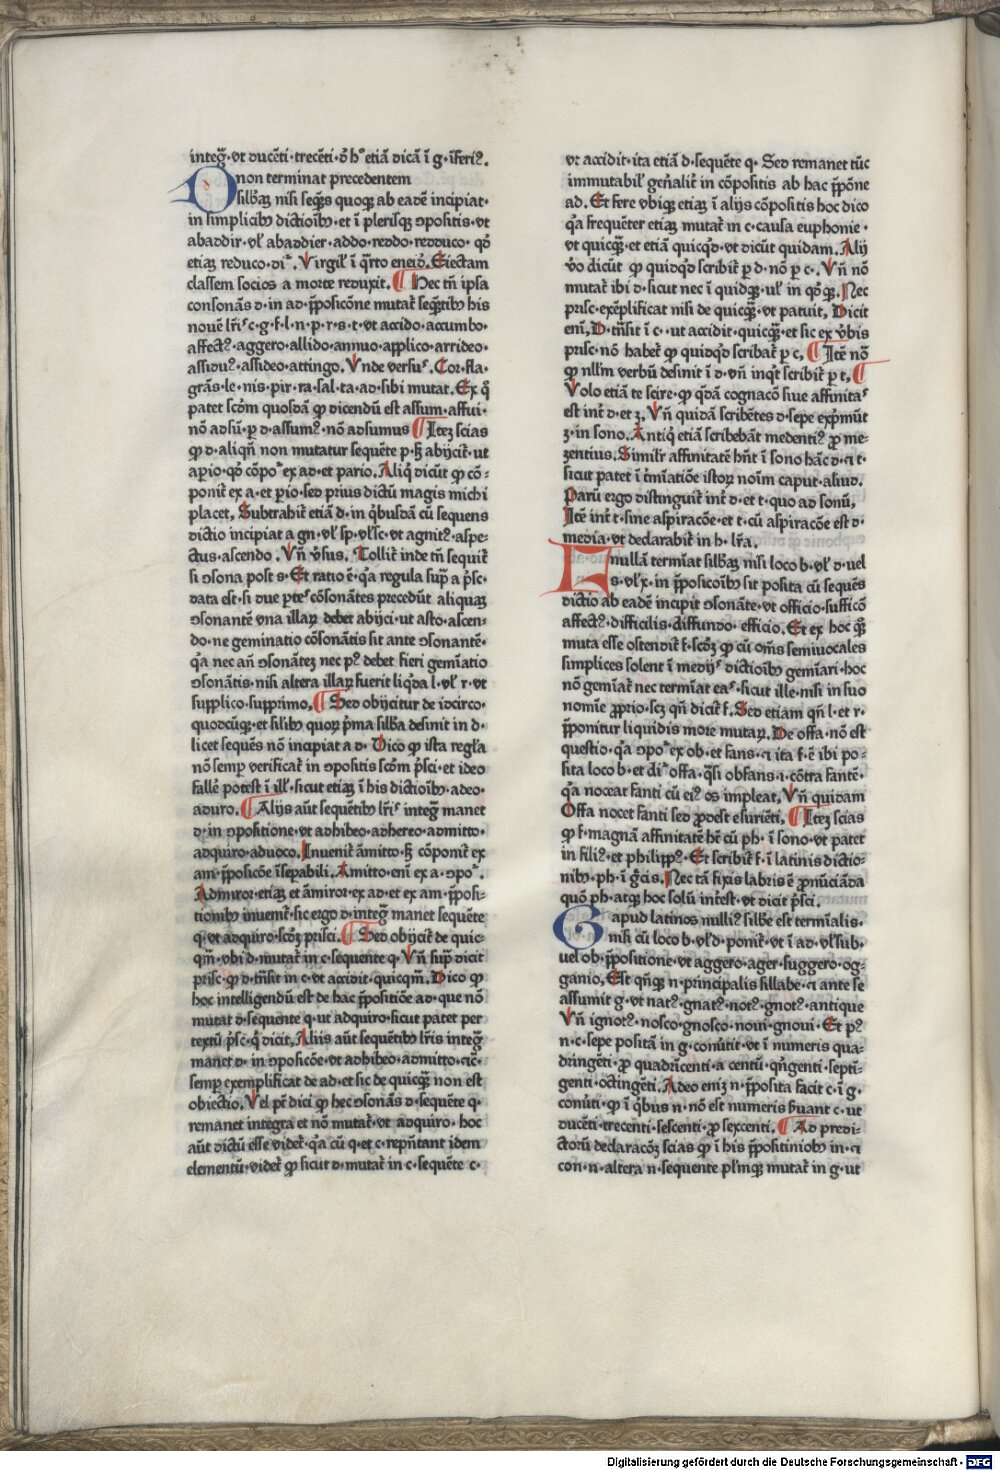 integꝝ·vt ducẽti·trecẽti·ð h° etiã dicã ĩ g·ĩferi⁹.
D non terminat precedentem
silbã nisi seq̃s quoq̨ ab eadẽ incipiat·
in simplicib⁹ dictiõib⁹·et ĩ plerisq̨ ɔpositis·vt
abaddir·vľ abaddier·addo·reddo·redduco·qð
etiã reduco·diʳ. Virgiľ ĩ q̃rto eneið. Eiectam
classem socios a morte reduxit. ¶ Hec tñ ipsa
consonãs d·in ad·p̃posicõne mutat̃ seq̃tib⁹ his
nouẽ lr̃is c·g·f·l·n·p·r·s·t·vt accido·accumbo·
affect⁹·aggero·allido·annuo·applico·arrideo·
assidu⁹·assideo·attingo. Vnde versuˢ. Cor·fla·
grãs·le·nis·pir·ra·sal·ta·ad·sibi mutat. Ex q̃
patet scðm quosdã ꝙ dicendũ est assum·affui·
nõ adsũ·ꝑ d·assum⁹·nõ adsumus ¶ Itez scias
ꝙ d·aliqñ non mutatur sequẽte p·ƕ abijcit̃·ut
aperio·qð cõpoʳ ex ad·et pario. Aliq̃ dicũt ꝙ cõ-
ponit̃ ex a·et perio·sed prius dictũ magis michi
placet, Subtrahit̃ etiã d·in q̃busdã cũ sequens
dictio incipiat a gn·vľ sp·vľ sc·vt agnit⁹·aspe-
ctus·ascendo. Vñ v̓sus. Tollit̃ inde tñ sequit̃
si ɔsona post s·Et ratio ẽ·q̃a regula sup̃ a p̓sc·
data est·si due ꝑteˢ cõsonãtes precedũt aliquaʒ
ɔsonantẽ vna illaꝝ debet abijci·ut asto·ascen-
do·ne geminatio cõsonãtis sit ante ɔsonantẽ·
q̃a nec añ ɔsonãteʒ nec p⁹ debet fieri gemĩatio
ɔsonãtis·nisi altera illaꝝ fuerit liq̃da l·vľ r·vt
supplico·supprimo, ¶ Sed obijcitur de idcirco·
quodcũq̨·et silib⁹ quoꝝ p̃ma silba desinit in d·
licet sequẽs nõ incipiat a d· Dico ꝙ ista regľa
nõ semꝑ verificat̃ in ɔpositis scðm p̓sci·et ideo
fallẽ potest ĩ illˢ·sicut etiã ĩ his dictiõib⁹·adeo·
aduro. ¶ Alijs aũt sequẽtib⁹ lr̃iˢ integꝝ manet
d·in ɔpositione·vt adhibeo·adhereo·admitto·
adquiro·aduoco. Inuenit̃ ãmitto·ƕ cõponit̃ ex
am·p̃posicõe ĩsepabili. Amitto·eni ex a·ɔpoʳ.
Admiror·etiã et ãmiror·ex ad·et ex am·p̃posi-
tionib⁹ inuenit̃·sic ergo d·integꝝ manet sequẽte
q·vt adquiro·scðʒ prisci. ¶ Sed obijcit̃ de quic-
q̃m·vbi d·mutat̃ in c·sequente q· Vñ sup̃ dicit
prisc·ꝙ d·trãsit in c·vt accidit·quicq̃m. Dico ꝙ
hoc intelligendũ est de hac p̃positiõe ad·que nõ
mutat d·sequente q·ut adquiro·sicut patet per
textũ p̓sc·q̃ dicit, Aliis aũt sequẽtib⁹ lr̃is integꝝ
manet d·in ɔposicõe·vt adhibeo·admitto·⁊c̃·
semꝑ exemplificat de ad·et sic de quicq̃ non est
obiectio. Vel pt̃ dici ꝙ hec ɔsonãs d·sequẽte q·
remanet integra et nõ mutat̃·vt adquiro·hoc
aũt dictũ esse videt̃·q̃a cũ q·et c·repñtant idem
elementũ·videt̃ ꝙ sicut d·mutat̃ in c·sequẽte c·
vt accidit·ita etiã d·sequẽte q· Sed remanet tũc
immutabiľ geñalit̃ in cõpositis ab hac p̃põne
ad. Et fere vbiq̨ etiã ĩ alijs cõpositis hoc dico
q̃a frequẽter etiã mutat̃ in c·causa euphonie·
vt quicq̃·et etiã quicq̃d·vt dicũt quidam. Alij
v̓o dicũt ꝙ quidq̃d scribit̃ ꝑ d·nõ ꝑ c·. Vñ nõ
mutat̃ ibi d·sicut nec ĩ quidq̃·uľ in qðq̃. Nec
prisc·exẽplificat nisi de quicq̃·vt patuit, Dicit
eni, D·trãsit ĩ c··ut accidit·quicq̃·et sic ex v̓bis
prisc·nõ habet̃ ꝙ quidq̃d scribat̃ ꝑ c, ¶ Itẽ nõ
ꝙ nllm verbũ desinit ĩ d·vñ inq̃t scribit̃ ꝑ t, ¶
Volo etiã te scire·ꝙ q̃dã cognacõ siue affinitaˢ
est int̃ d·et ʒ, Vñ quidã scribẽtes d·sepe exp̃mũt
ʒ·in sono. Antiq̃ etiã scribebãt medenti⁹ ꝓ me-
zentius. Similr̃ affinitatẽ hñt ĩ sono hãc d·⁊ t·
sicut patet ĩ t̓miatiõe istoꝝ noĩm caput·aliud.
Parũ ergo distinguit̃ int̃ d·et t·quo ad sonũ,
Itẽ int̃ t·sine aspiracõe·et t·cũ aspiracõe est d·
media·vt declarabit̃ in h·lr̃a.
F nullã termĩat silbã nisi loco b·vľ d·uel
s·vľ x·in p̃posicoĩb⁹ sit posita cũ sequẽs
dictio ab eadẽ incipit ɔsonãte·vt officio·sufficõ
affect⁹·difficilis·diffundo·efficio. Et ex hoc q̃
muta esse ostendit̃ f·scðʒ ꝙ cũ om̃s semiuocales
simplices solent ĩ medijˢ dictiõib⁹ gemĩari·hoc
nõ gemĩat̃ nec termĩat eaˢ·sicut ille·nisi in suo
nomĩe proprio·scʒ qñ dicit̃ f. Sed etiam qñ l·et r·
p̃ponitur liquidis more mutaꝝ. De offa·nõ est
questio·q̃a ɔpoʳ ex ob·et fans·⁊ ita f·ẽ ibi po-
sita loco b·et diʳ offa·q̃si obfans·ı·cõtra fantẽ·
q̃a noceat fanti cũ ei⁹ os impleat, Vñ quidam
Offa nocet fanti sed prodest esuriẽti, ¶ Itez scias
ꝙ f·magnã affinitatẽ hẽ cũ ph·ĩ sono·vt patet
in fili⁹·et philipp⁹·Et scribit̃ f·ĩ latinis dictio-
nib⁹·ph·ĩ g̃cis. Nec tã fixis labris ẽ pronũciãda
quõ ph·atq̨ hoc solũ int̓est·vt dicit p̓sci.
G apud latinos nulli⁹ silbe est termĩalis·
nisi cũ loco b·vľ d·ponit̃·vt ĩ ad·vľ sub·
uel ob·p̃positione·vt aggero·ager·suggero·og-
ganio, Est qñq̨ n·principalis sillabe·⁊ ante se
assumit g·vt nat⁹·gnat⁹·not⁹·gnot⁹·antique
Vñ ignot⁹·nosco·gnosco·noui·gnoui·Et p⁹
n·c·sepe positã in g·conũtit·vt ĩ numeris qua-
dringẽti·ꝓ quadrĩcenti·a centũ·q̃ngenti·septĩ-
genti·octingẽti. Adeo enĩ n·p̃posita facit c·ĩ g·
conũti·ꝙ ĩ q̃bus n·nõ est numeris s̓uant c·ut
ducẽti·trecenti·sescenti·ꝓ sexcenti. ¶ Ad predi-
ctorũ declaracõʒ scias ꝙ ĩ his p̃positiniob⁹ in·⁊
con·n·altera n·sequente pľmq̨ mutat̃ in g·ut
Digitalisierung gefördert durch die Deutsche Forschungsgemeinschaft - DFG